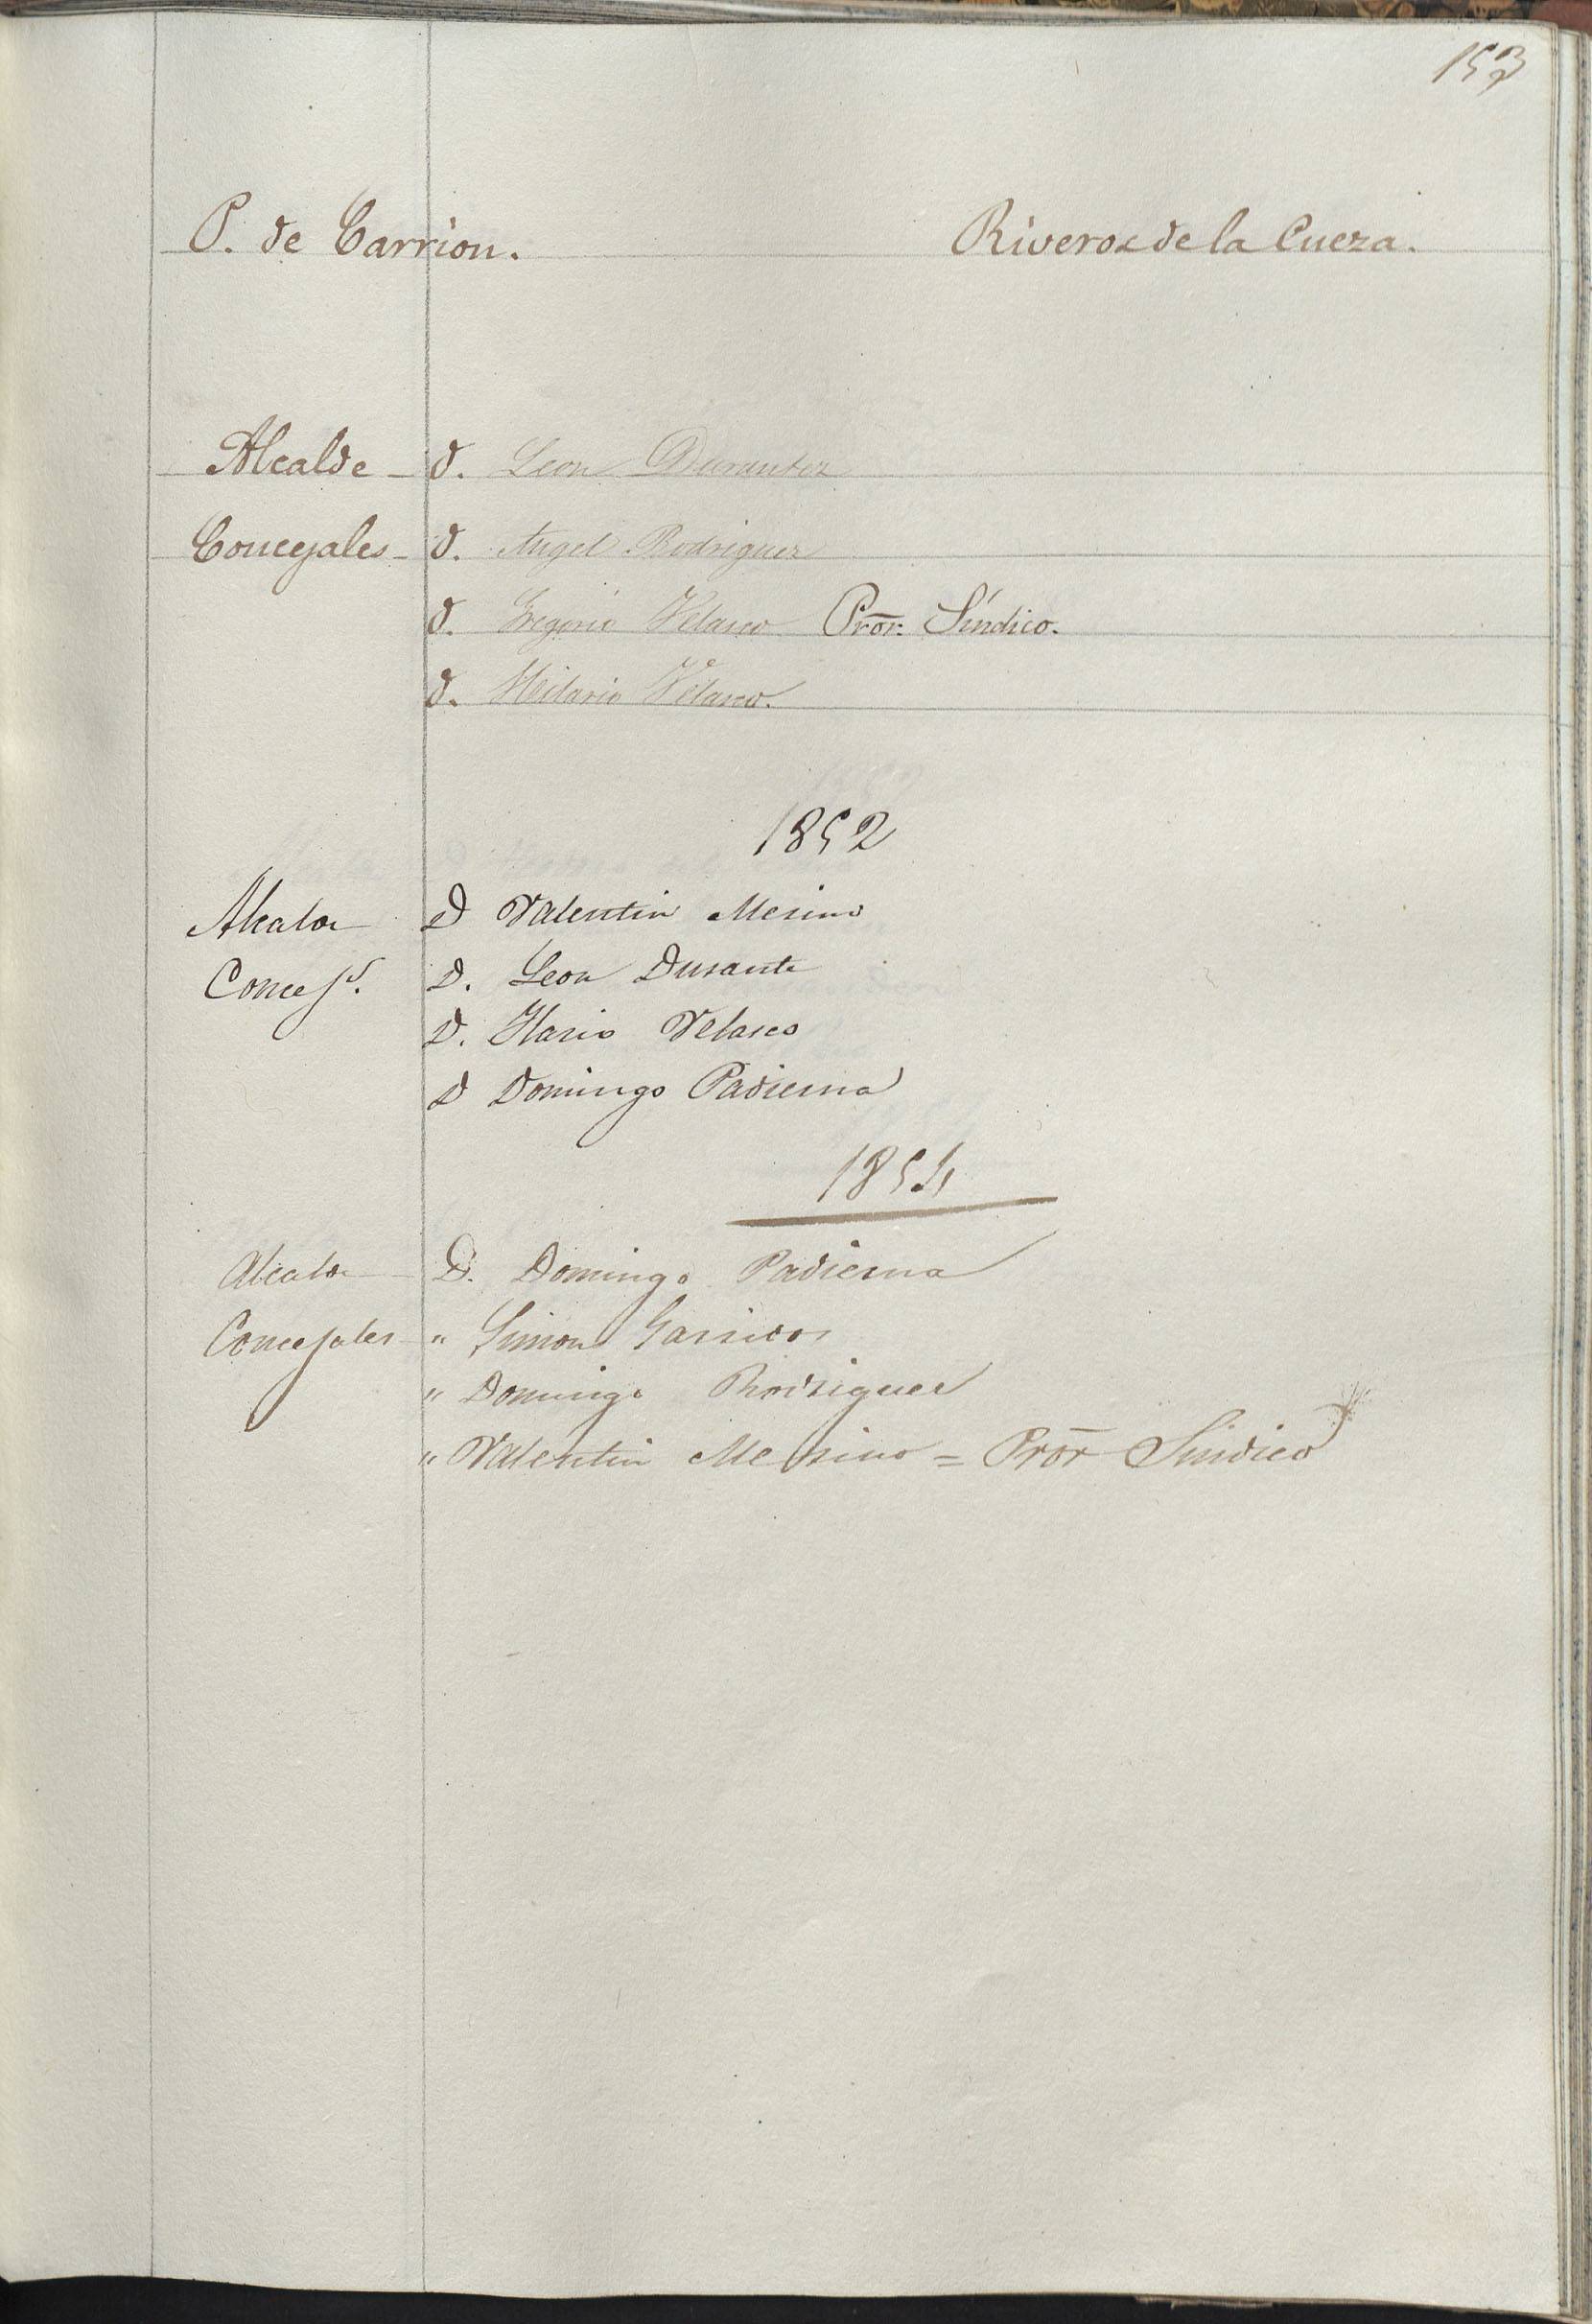 153
P. de Carrion. Riveros de la Cueza.
Alcalde D. Leon Durantez
Concejales D. Angel Rodriguez
D. Gregorio Velasco Pror. Síndico.
D. Hilario Velasco.
1852
Alcalde D Valentin Merino
Concejs. D. Leon Durante
D. Ilario Velasco
D Domingo Padierna
1854
Alcalde D. Domingo Padierna
Concejales " Simon Garridos
" Domingo Rodriguez
" Valentin Merino = Pror Sindico